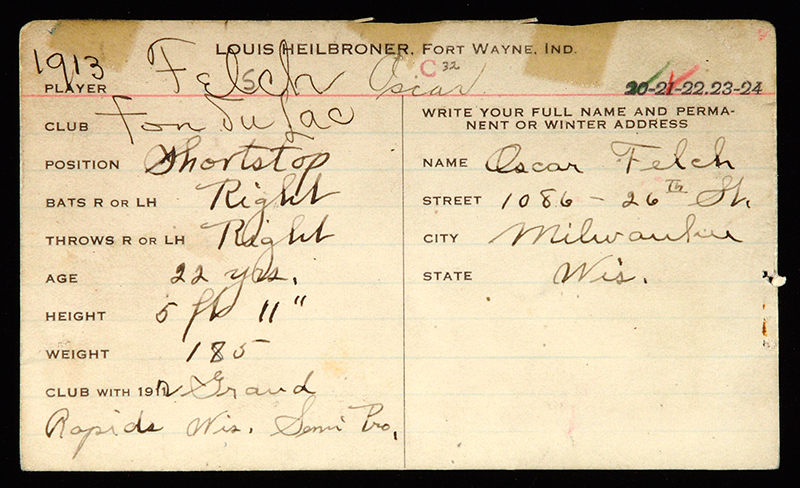 LOUIS HEILBRONER, FORT WAYNE, IND.
1913
PLAYER Felsch Oscar C 32 20-21-22.23-24
CLUB Fon Du Lac
POSITION Shortstop
BATS R OR LH Right
THROWS R OR LH Right
AGE 22 yrs.
HEIGHT 5 ft 11"
WEIGHT 185
CLUB WITH 1912 Grand
Rapids Wis. Semi Pro.
WRITE YOUR FULL NAME AND PERMA-
NENT OR WINTER ADDRESS
NAME Oscar Felch
STREET 1086 - 26th St.
CITY Milwaukee
STATE Wis.